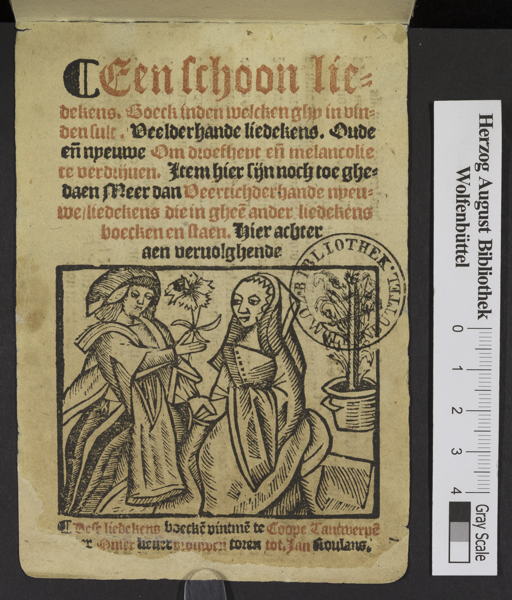 Een schoon lie-
dekens. Boeck inden welcken ghy in vin-
den sult. Veelderhande liedekens. Oude
en̄ nyeuwe Om droefheyt en̄ melancolie
te verdrijuen. Item hier sijn noch toe ghe-
daen Meer dan Veertichderhande nyeu-
we liedekens die in gheē ander liedekens
boecken en staen. Hier achter
aen veruolghende
BIBLIOTHEK
Dese liedekens boeckē vintmē te Coope Tantwerpē
Omer lieuer vrouwen toren tot Jan Roulans.
Herzog August Bibliothek
Wolfenbüttel
0 1 2 3 4
Gray Scale